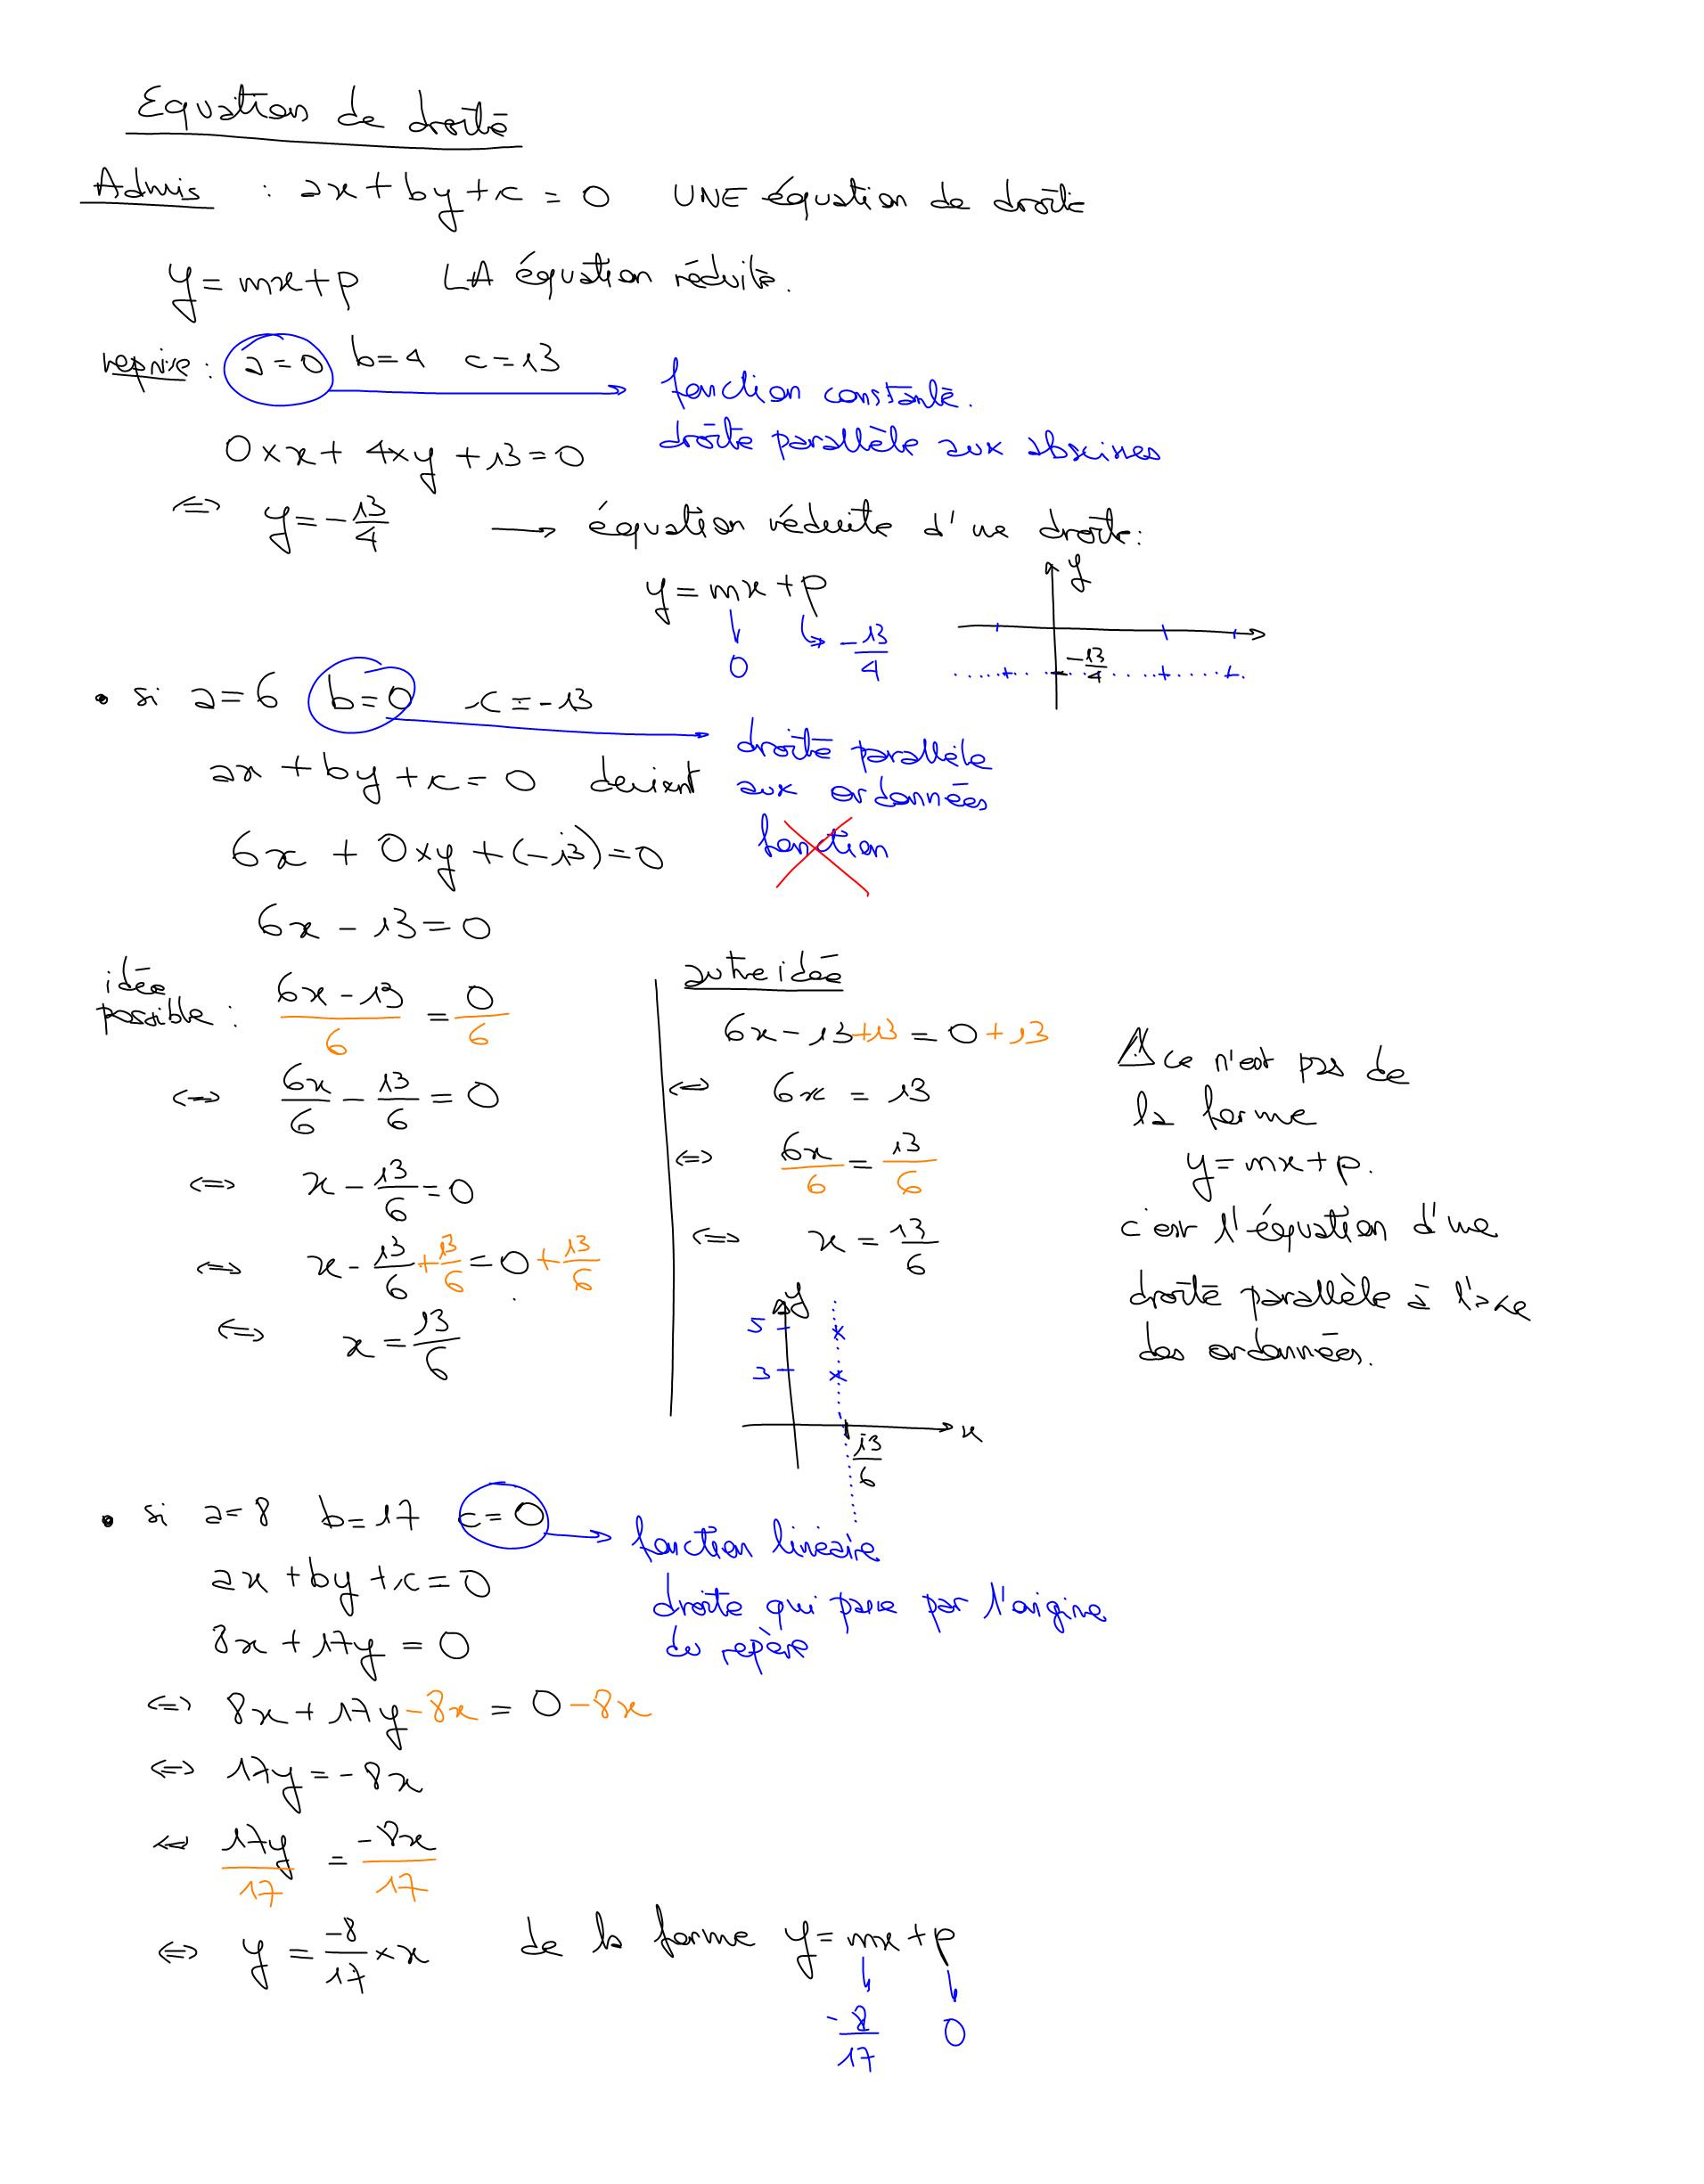 Equation de droite
Admis : ax + by + c = 0 UNE équation de droite
y = mx + p LA équation réduite.
reprise : a = 0 b = 4 c = 13
fonction constante.
droite parallèle aux abscisses
0 × x + 4 × y + 13 = 0
⇔ y = -13/4 → équation réduite d'une droite :
y = mx + p
0 -13/4
y
-13/4
• si a = 6 b = 0 c = -13
droite parallèle
aux ordonnées
fonction
ax + by + c = 0 devient
6x + 0 × y + (-13) = 0
6x - 13 = 0
idée
possible : (6x - 13)/6 = 0/6
⇔ 6x/6 - 13/6 = 0
⇔ x - 13/6 = 0
⇔ x - 13/6 + 13/6 = 0 + 13/6
⇔ x = 13/6
autre idée
6x - 13 + 13 = 0 + 13
⇔ 6x = 13
⇔ 6x/6 = 13/6
⇔ x = 13/6
y
5
3
x
13/6
⚠ ce n'est pas de
la forme
y = mx + p.
c'est l'équation d'une
droite parallèle à l'axe
des ordonnées.
• si a = 8 b = 17 c = 0
fonction linéaire
droite qui passe par l'origine
du repère
ax + by + c = 0
8x + 17y = 0
⇔ 8x + 17y - 8x = 0 - 8x
⇔ 17y = -8x
⇔ 17y/17 = -8x/17
⇔ y = -8/17 × x de la forme y = mx + p
-8/17 0